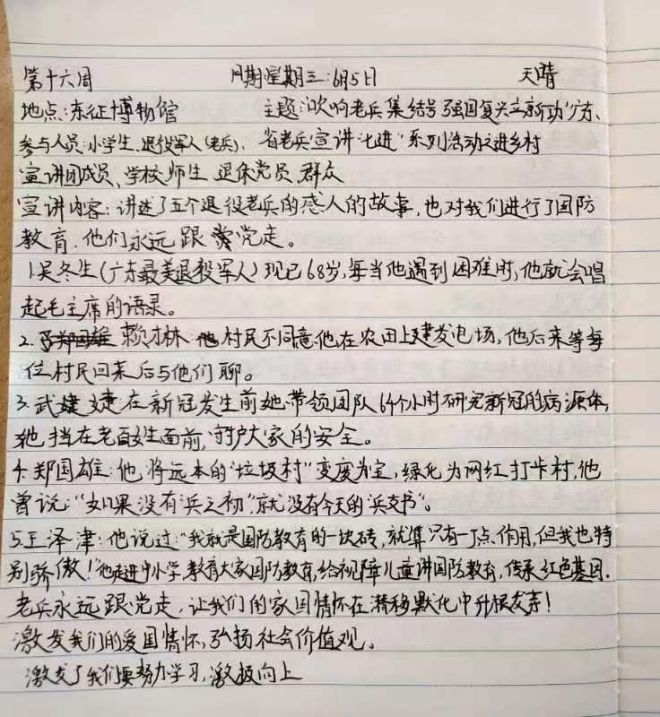 第十六周 日期:星期三:6月5日 天晴
地点:东征博物馆 主题:吹响老兵集结号 强国复兴立新功"广东、
参与人员:小学生、退役军人(老兵)、省老兵宣讲"七进"系列活动之进乡村
宣讲团成员、学校师生 退休党员 群众
宣讲内容:讲述了五个退役老兵的感人的故事,也对我们进行了国防
教育.他们永远跟党走。
1.吴冬生(广东最美退役军人)现已68岁,每当他遇到困难时,他就会唱
起毛主席的语录。
2.赖林:村民不同意他在农田上建发电场,他后来等每
位村民回来后与他们聊。
3.武婕 在新冠发生前她带领团队64个小时研究新冠的病源体,
她挡在老百姓生面前,守护大家的安全。
4.郑国雄:他将远本的"垃圾村"变废为宝,绿化为网红打卡村,他
曾说:"如果没有兵之初"就没有今天的"兵支书"。
5.王泽津:他说过:"我就是国防教育的一块砖,就算只有一丁点作用,但我也特
别骄傲!"他走进中小学,教育大家国防教育,给视障儿童讲国防教育,传承红色基因.
老兵永远跟党走,让我们的家国情怀在潜移默化中升根发芽!
激发我们的爱国情怀,弘扬社会价值观。
激发了我们要努力学习,激极向上